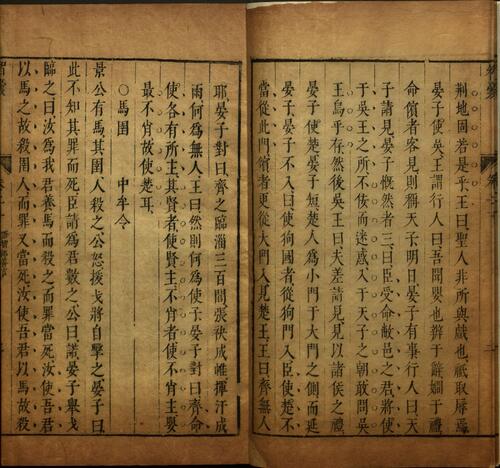 荆地固若是乎王曰聖人非所與戲也秪取辱焉
晏子使吳王謂行人曰吾聞嬰也辯于辭嫺于禮
命儐者客見則稱天子明日晏子有事行人曰天
子請見晏子慨然者三曰臣受命敝邑之君將使
于吳王之所不佞而迷惑入于天子之朝敢問吳
王烏乎存然後吳王曰夫差請見見以諸侯之禮
晏子使楚晏子短楚人爲小門于大門之側而延
晏子晏子不入曰使狗國者從狗門入臣使楚不
當從此門儐者更從大門入見楚王王曰齊無人
耶晏子對曰齊之臨淄三百閭張袂成帷揮汗成
雨何爲無人王曰然則何爲使子晏子對曰齊命
使各有所主其賢者使賢主不肖者使不肖主嬰
最不肖故使楚耳
○馬圉 中牟令
景公有馬其圉人殺之公怒援戈將自擊之晏子曰
此不知其罪而死臣請爲君數之公曰諾晏子舉戈
臨之曰汝爲我君養馬而殺之而罪當死汝使吾君
以馬之故殺圉人而罪又當死汝使吾君以馬故殺